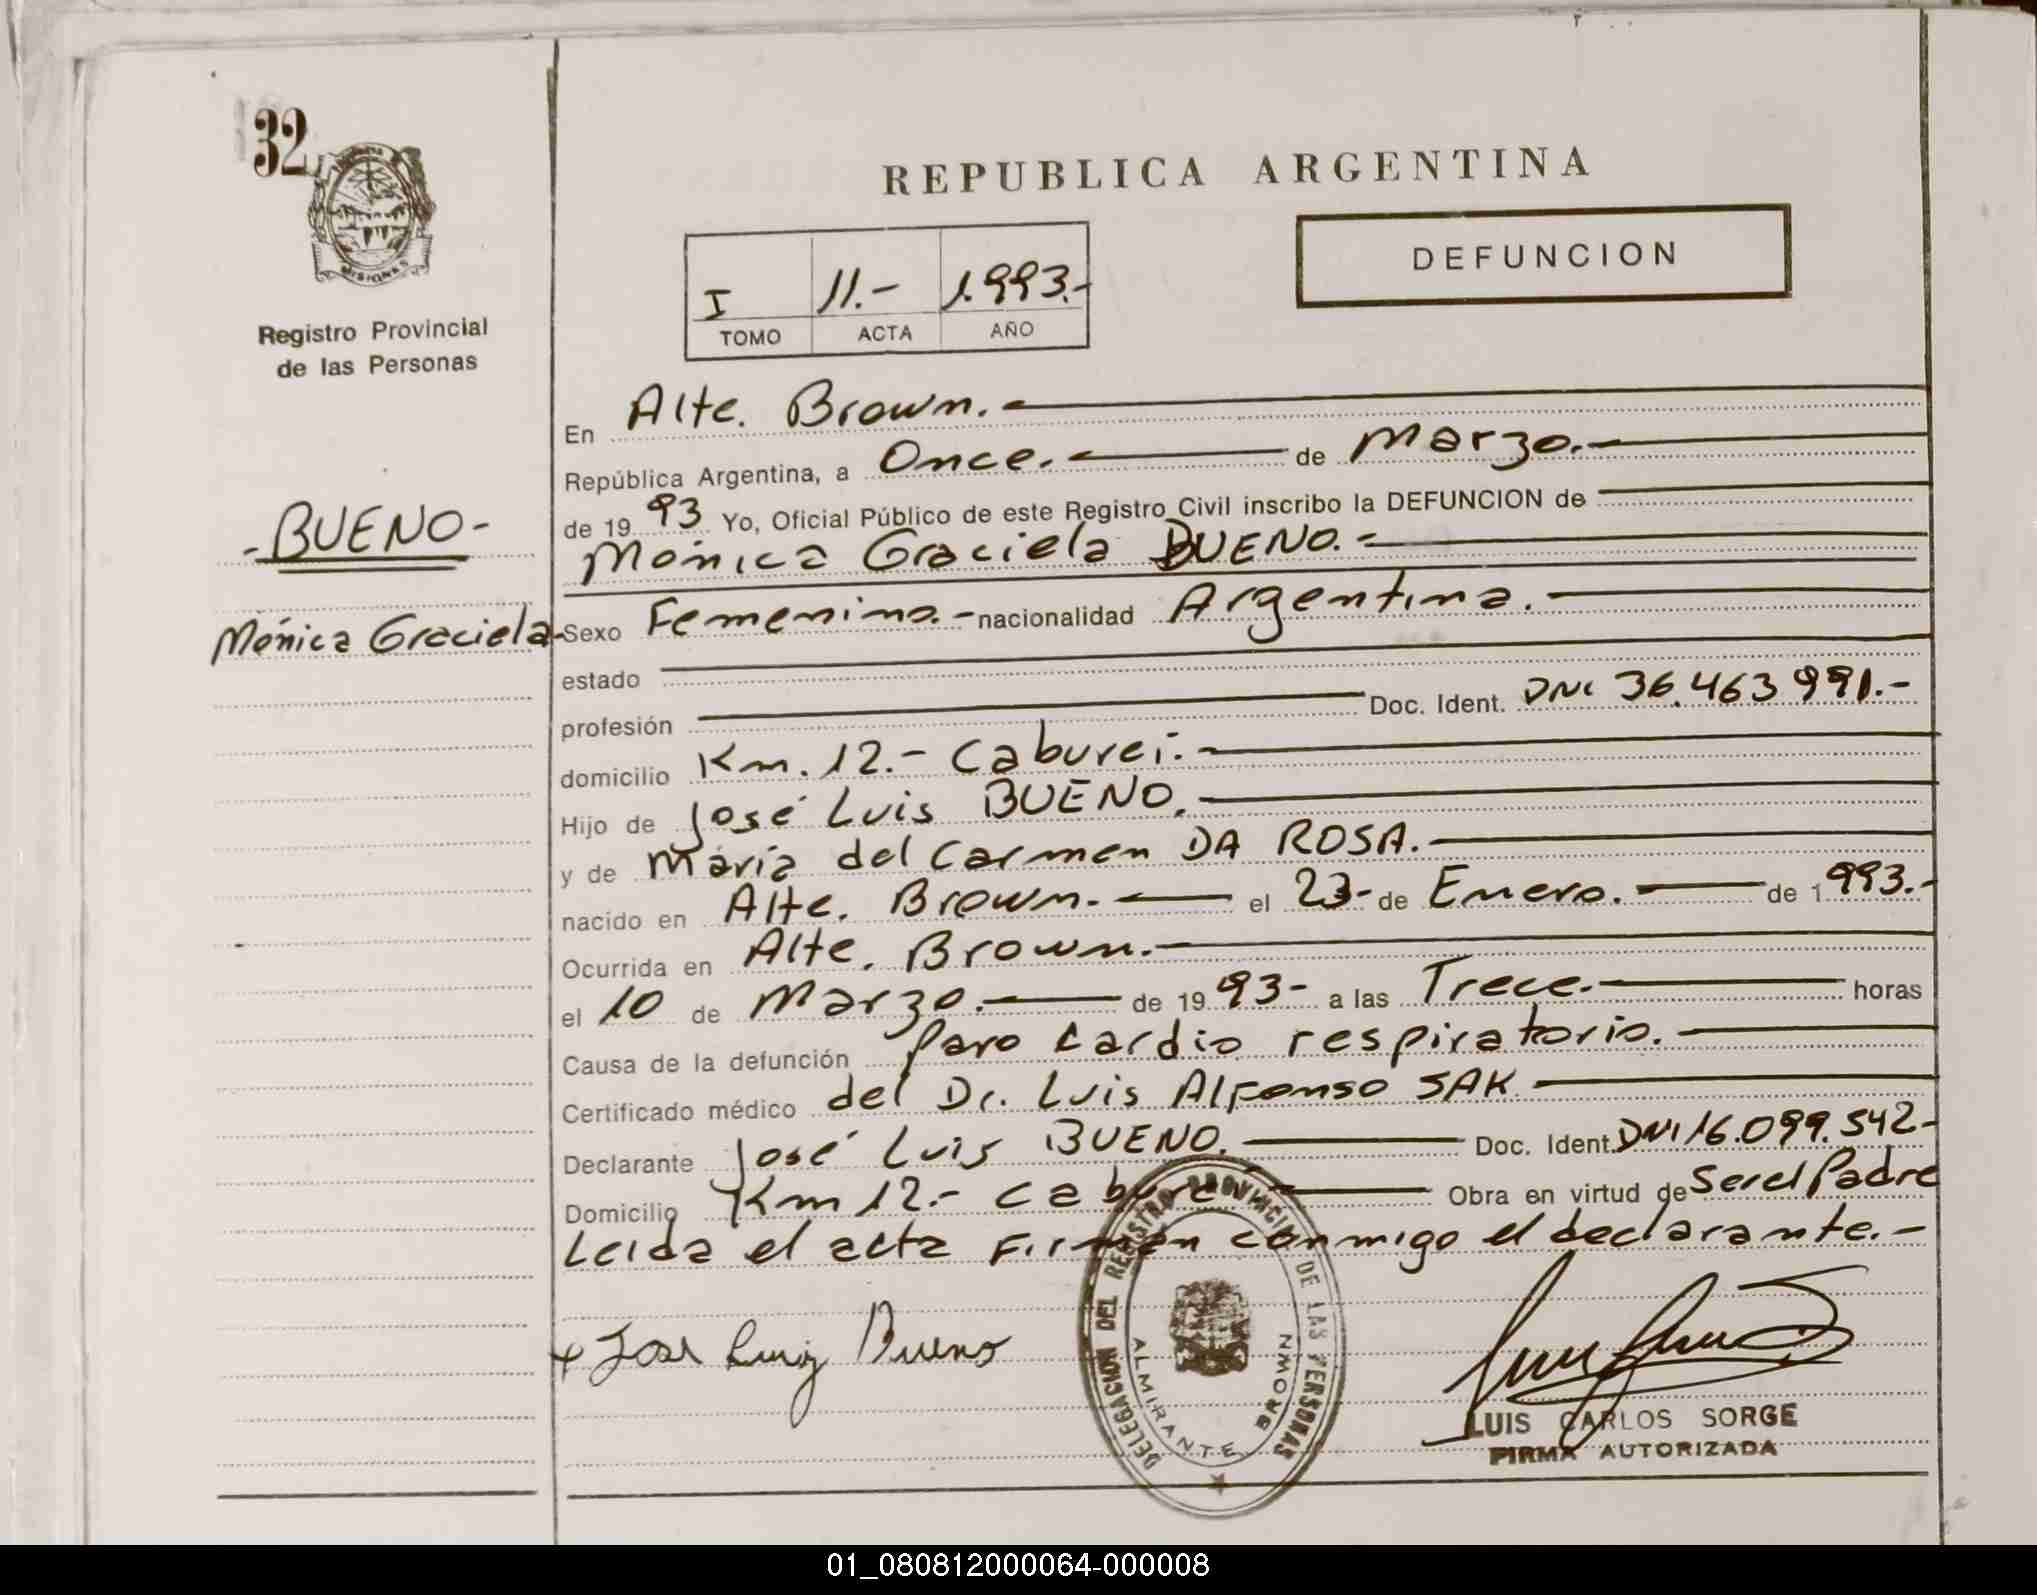 32
MISIONES
Registro Provincial
de las Personas
- BUENO -
Mónica Graciela
REPUBLICA ARGENTINA
I 11.- 1.993.-
TOMO ACTA AÑO
DEFUNCION
En Alte. Brown.-
República Argentina, a Once.- de Marzo.-
de 19 93 Yo, Oficial Público de este Registro Civil inscribo la DEFUNCION de
Mónica Graciela BUENO.-
Sexo Femenino.- nacionalidad Argentina.-
estado
profesión Doc. Ident. DNI 36.463.991.-
domicilio Km. 12.- Caburei.-
Hijo de José Luis BUENO.-
y de María del Carmen DA ROSA.-
nacido en Alte. Brown.- el 23- de Enero.- de 1 993.-
Ocurrida en Alte. Brown.-
el 10 de Marzo.- de 19 93- a las Trece.- horas
Causa de la defunción Paro Cardio respiratorio.-
Certificado médico del Dr. Luis Alfonso SAK.-
Declarante José Luis BUENO.- Doc. Ident. DNI 16.099.542-
Domicilio Km 12.- Caburei Obra en virtud de Ser el Padre
Leida el acta Firman conmigo el declarante.-
x Jose Luiz Bueno
DELEGACION DEL REGISTRO PROVINCIAL DE LAS PERSONAS
ALMIRANTE BROWN
LUIS CARLOS SORGE
FIRMA AUTORIZADA
01_080812000064-000008